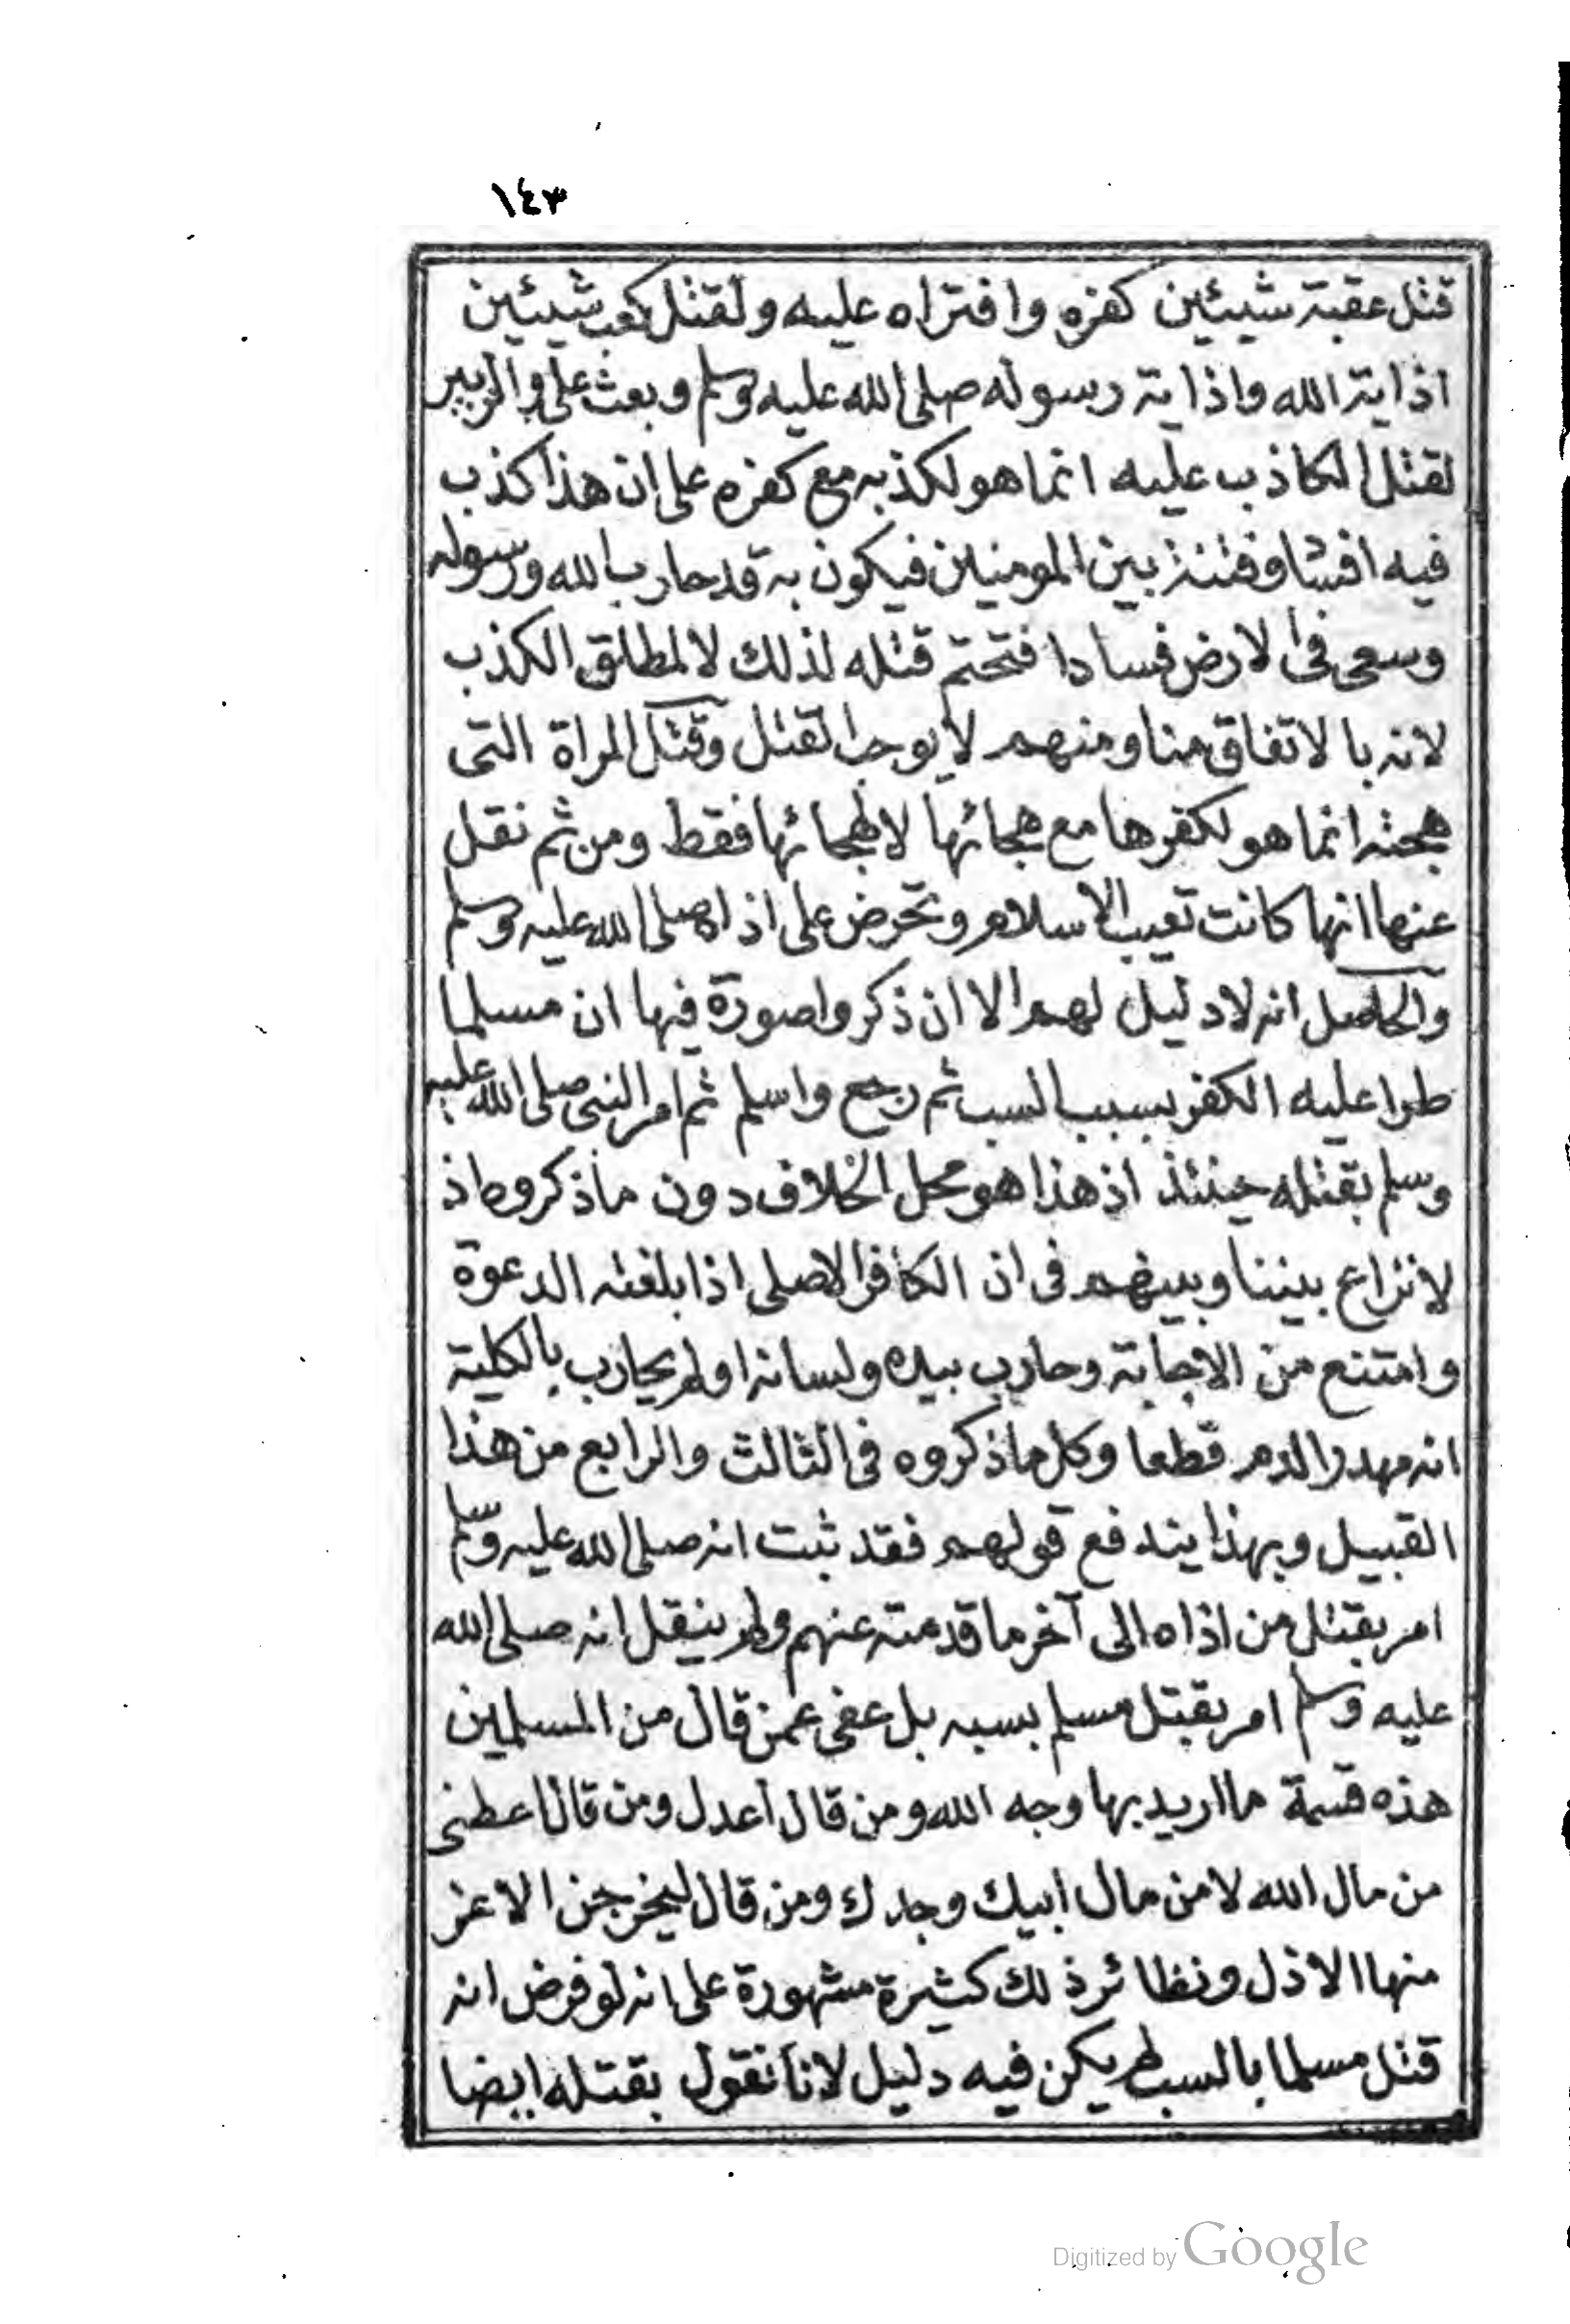 ١٤٣
قتل عقبة شيئين كفره وافتراه عليه ولقتل كعب شيئين
اذاية الله واذاية رسوله صلى الله عليه وسلم وبعث علي والزبير
لقتل الكاذب عليه انما هو لكذبه مع كفره على ان هذا كذب
فيه افشا وفتنة بين المومنين فيكون به قد حارب الله ورسوله
وسعى فى الارض فسادا فتحتم قتله لذلك لا لمطلق الكذب
لانه با لاتفاق منا ومنهم لا يوجب القتل وقتل المراة التى
هجته انما هو لكفرها مع هجائها لا لهجائها فقط ومن ثم نقل
عنها انها كانت تعيب الاسلام وتحرض على اذاه صلى الله عليه وسلم
والحاصل انه لا دليل لهم الا ان ذكروا صورة فيها ان مسلما
طرا عليه الكفر بسبب السب ثم رجع واسلم ثم امر النبى صلى الله عليه
وسلم بقتله حينئذ اذ هذا هو محل الخلاف دون ما ذكروه اذ
لا نزاع بيننا وبينهم فى ان الكافر الاصلى اذا بلغته الدعوة
وامتنع من الاجابة وحارب بيده ولسانه او لم يحارب بالكلية
انه مهدر الدم قطعا وكل ما ذكروه فى الثالث والرابع من هذا
القبيل وبهذا يندفع قولهم فقد ثبت انه صلى الله عليه وسلم
امر بقتل من اذاه الى آخر ما قدمته عنهم ولم ينقل انه صلى الله
عليه وسلم امر بقتل مسلم بسبه بل عفى عمن قال من المسلمين
هذه قسمة ما اريد بها وجه الله ومن قال اعدل ومن قال اعطنى
من مال الله لا من مال ابيك وجدك ومن قال ليخرجن الاعز
منها الاذل ونظائر ذلك كثيرة مشهورة على انه لو فرض انه
قتل مسلما بالسب لم يكن فيه دليل لانا نقول بقتله ايضا
Digitized by Google